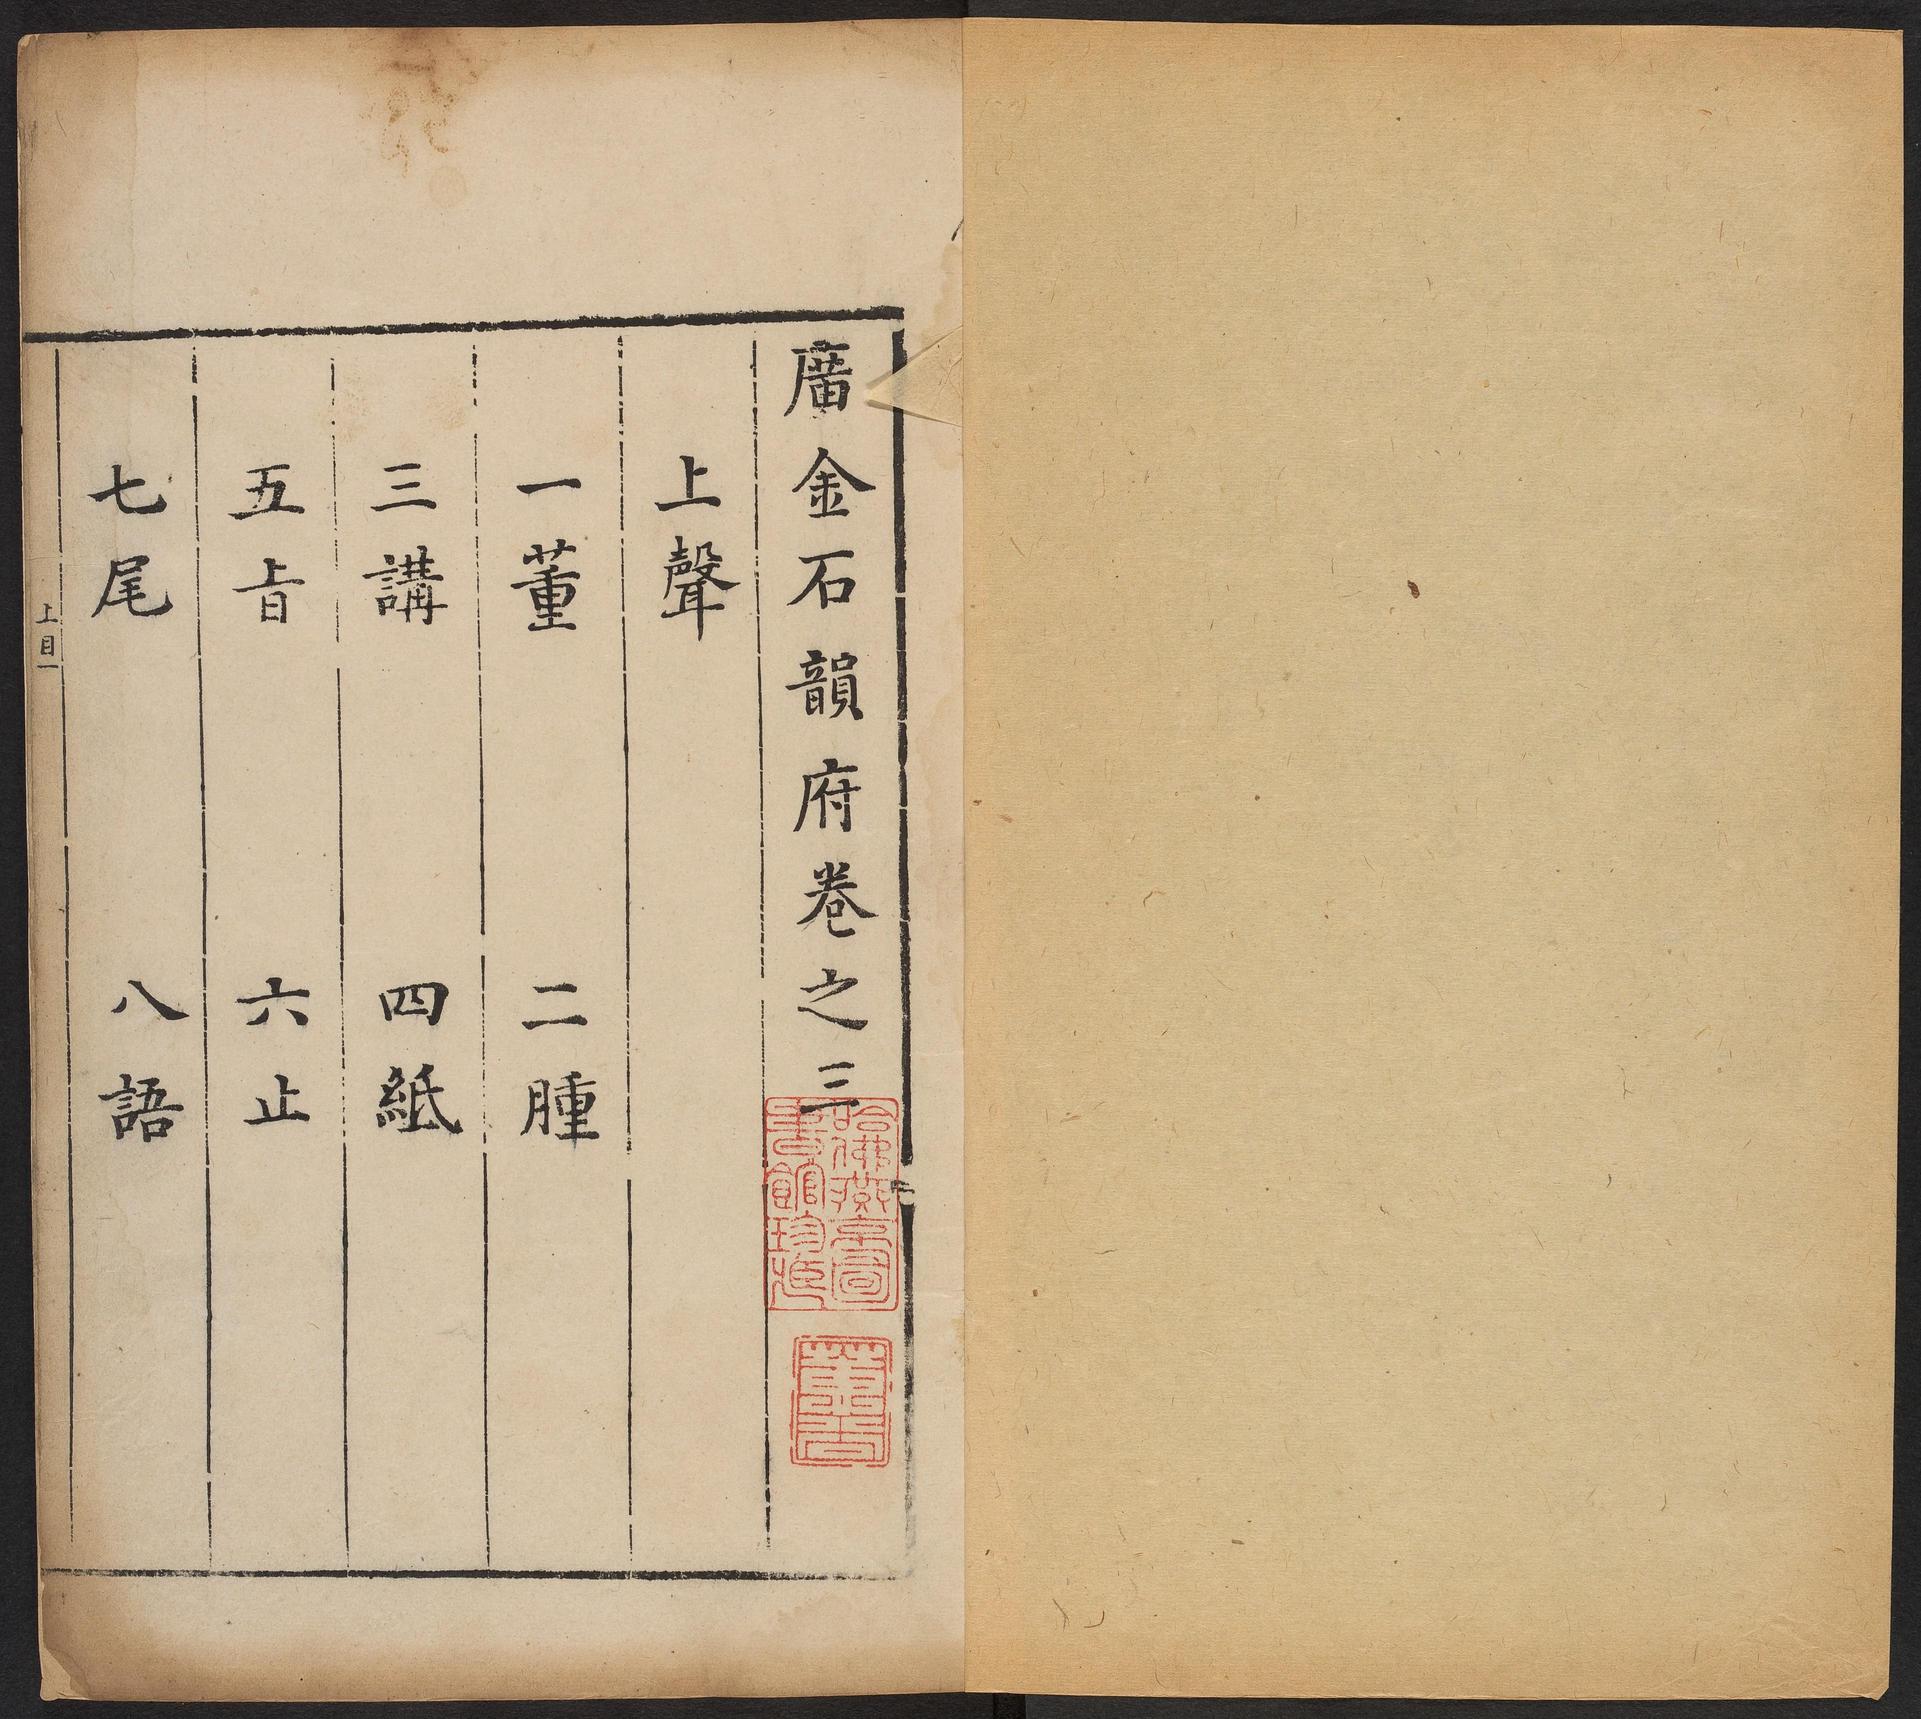 廣金石韻府卷之三
上聲
一董　二腫
三講　四紙
五旨　六止
七尾　八語
上目一
哈佛燕京圖
書館珍藏